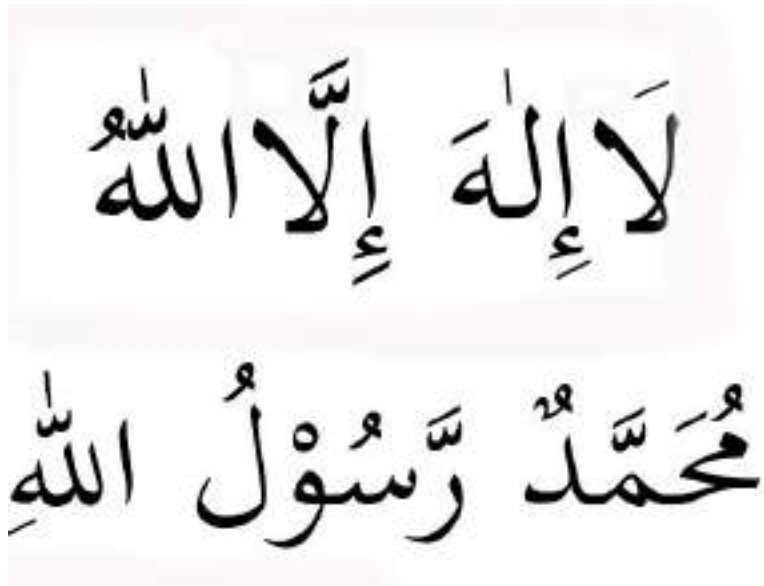 لَا إِلٰهَ إِلَّا اللّٰهُ
مُحَمَّدٌ رَّسُوْلُ اللّٰهِ